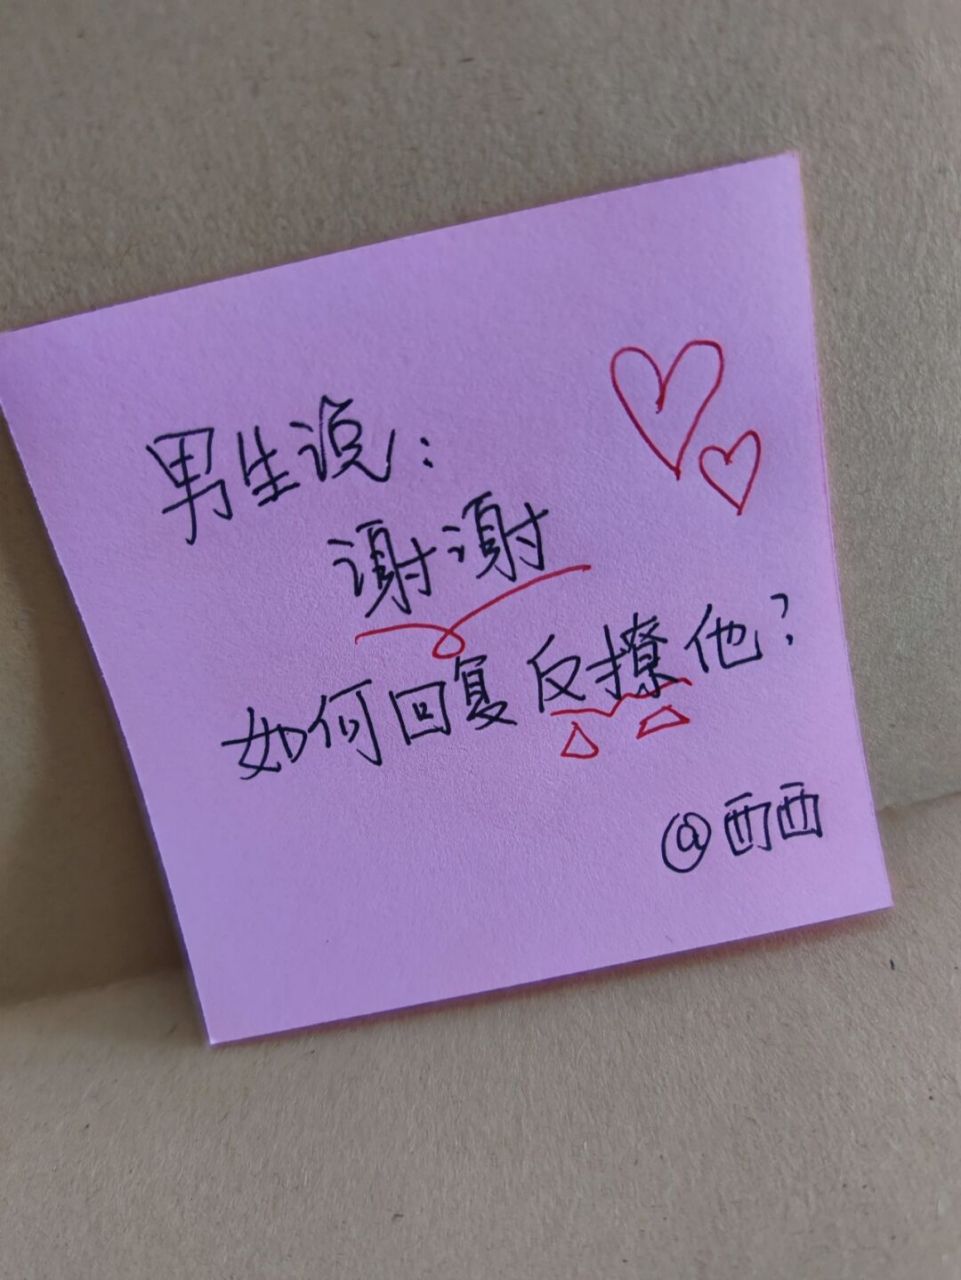 男生说：
谢谢
如何回复反撩他？
@西西